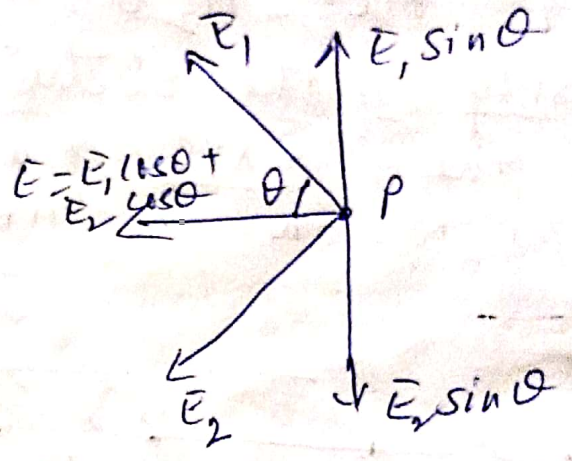 E₁
E₁ sinθ
E = E₁cosθ +
E₂ cosθ
θ
P
E₂
E₂ sinθ